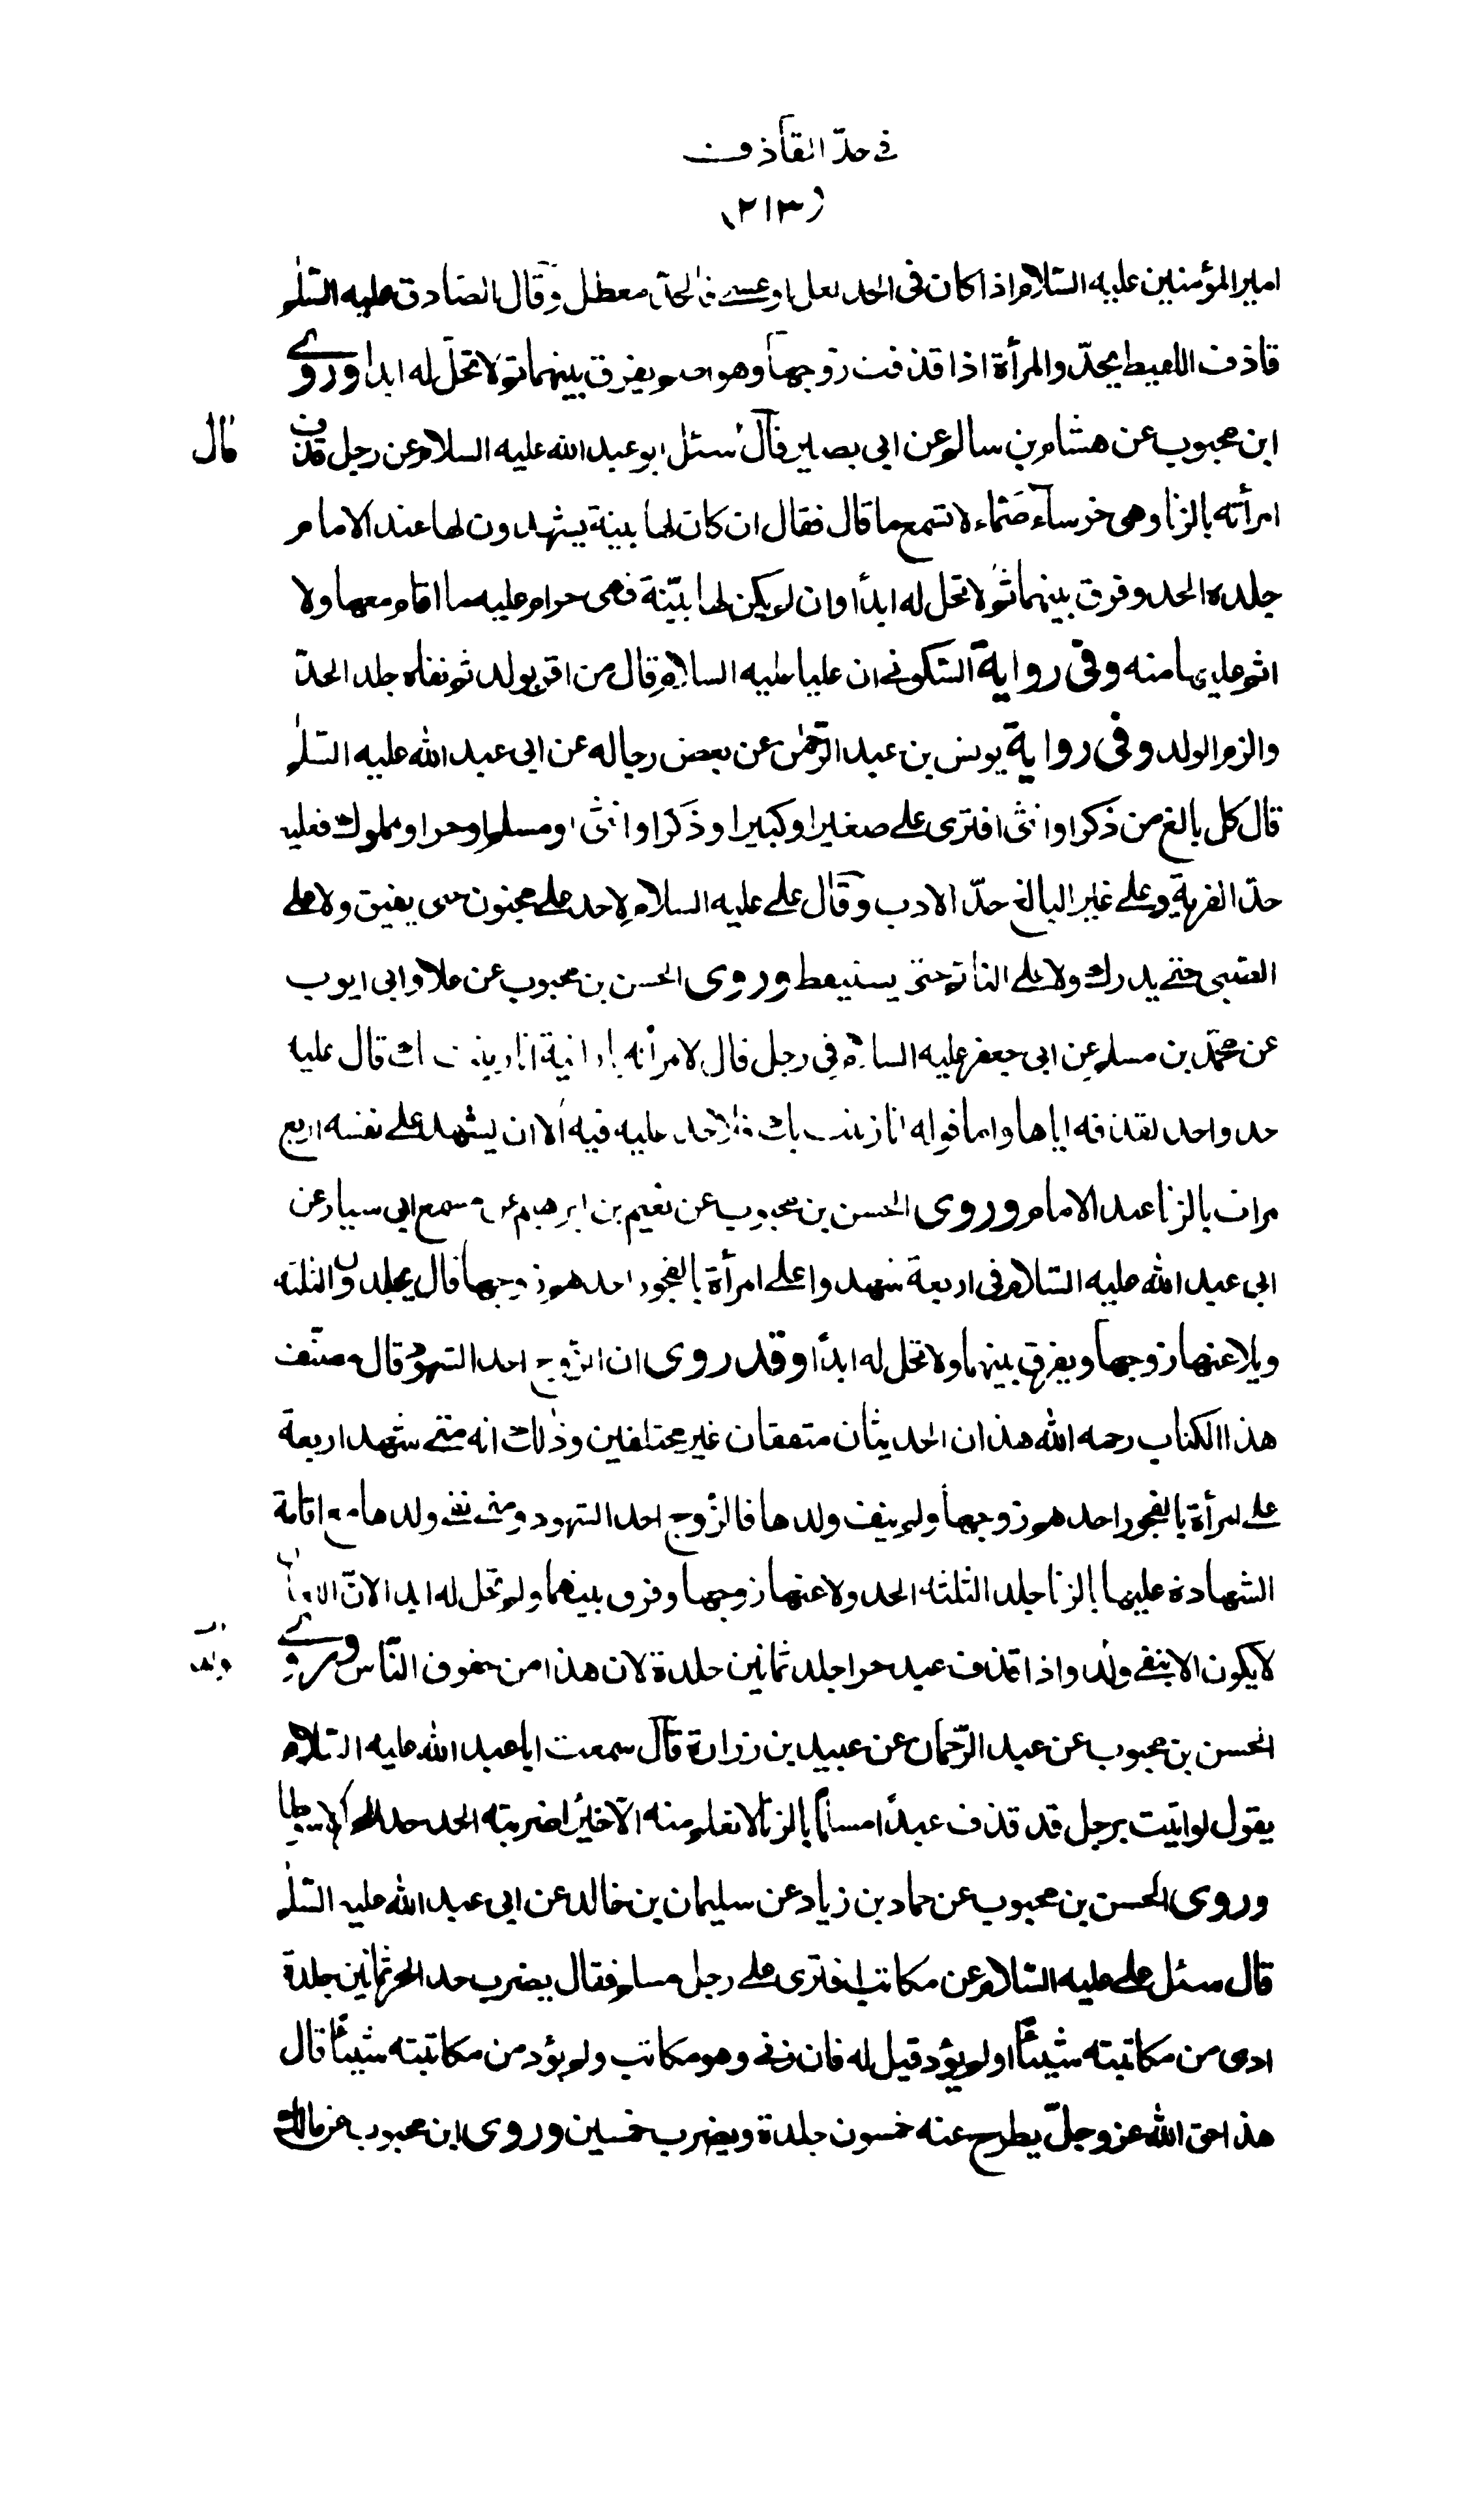 في حدّ القاذف
(٢١٣)
امير المؤمنين عليه السّلام اذا كان فى الحد لعل او عسى فالحدّ معطل وقال الصّادق عليه السّلم
قاذف اللقيط يحدّ والمرأة اذا قذفت زوجها وهو يفرق بينهما ثم لا تحل له ابدا وروى
ابن محبوب عن هشام بن سالم عن ابى بصير قال سئل ابو عبد الله عليه السلام عن رجل قذف
قال
امرأته بالزنا وهى خرساء صمّاء لا تسمع ما قال فقال ان كان لها بينة يشهدون لها عند الامام
جلده الحد وفرق بينهما ثم لا تحل له ابدا وان لم يكن لها بيّنة فهى حرام عليه ما اقام معها ولا
اثم عليها منه وفى رواية السّكونى ان عليا عليه السلام قال من اقر بولد ثم نفاه جلد الحدّ
والزم الولد وفى رواية يونس بن عبد الرّحمن عن بعض رجاله عن ابى عبد الله عليه السّلم
قال كل بالغ من ذكر او انثى افترى على صغير او كبير او ذكر او انثى او مسلم او حر او مملوك فعليه
حدّ الفرية وعلى غير البالغ حدّ الادب وقال على عليه السلام لا حد على مجنون حتى يفيق ولا على
الصّبى حتى يدرك ولا على النائم حتى يستيقظ وروى الحسن بن محبوب عن علا وابى ايوب
عن محمّد بن مسلم عن ابى جعفر عليه السلام فى رجل قال لامرأته يا زانية انا زنيت بك قال عليه
حد واحد لقذفه اياها واما قوله انا زنيت بك فلا حد عليه فيه الا ان يشهد على نفسه اربع
مرات بالزنا عند الامام وروى الحسن بن محبوب عن نعيم بن ابرهيم عن مسمع ابى سيار عن
ابى عبد الله عليه السّلام فى اربعة شهدوا على امرأة بالفجور احدهم زوجها قال يجلدون الثلثة
ويلاعنها زوجها ويفرق بينهما ولا تحل له ابدا وقد روى ان الزّوج احد الشهود قال مصنّف
هذا الكتاب رحمه الله هذان الحديثان متفقان غير مختلفين وذلك انه متى شهد اربعة
على امرأة بالفجور احدهم زوجها ولم ينف ولدها فالزّوج احد الشهود ومتى نفى ولدها مع اقامة
الشهادة عليها بالزنا جلد الثلثة الحد ولاعنها زوجها وفرق بينهما ولم تحل له ابدا لانّ اللعان
لا يكون الا بنفى ولد واذا قذف عبد حرا جلد ثمانين جلدة لان هذا من حقوق النّاس وروى
الحسن بن محبوب عن عبد الرّحمان عن عبيد بن زرارة قال سمعت ابا عبد الله عليه السّلام
يقول لو اتيت برجل قد قذف عبدًا مسلمًا بالزنا لا نعلم منه الّا خيرًا لضربته الحد حد الحر الا سوطا
وروى الحسن بن محبوب عن حماد بن زياد عن سليمان بن خالد عن ابى عبد الله عليه السّلم
قال سئل على عليه السّلام عن مكاتب افترى على رجل مسلم فقال يضرب حد الحر ثمانين جلدة
ادى من مكاتبته شيئًا او لم يؤد قيل له فان زنى وهو مكاتب ولم يؤد من مكاتبته شيئًا قال
هذا حق الله عز وجلّ يطرح عنه خمسون جلدة ويضرب خمسين وروى ابن محبوب عن مالك